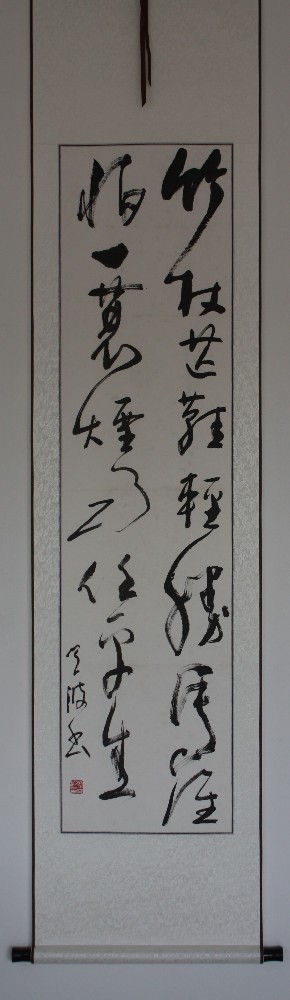 竹杖芒鞋輕勝馬誰
怕一蓑煙雨任平生
波書